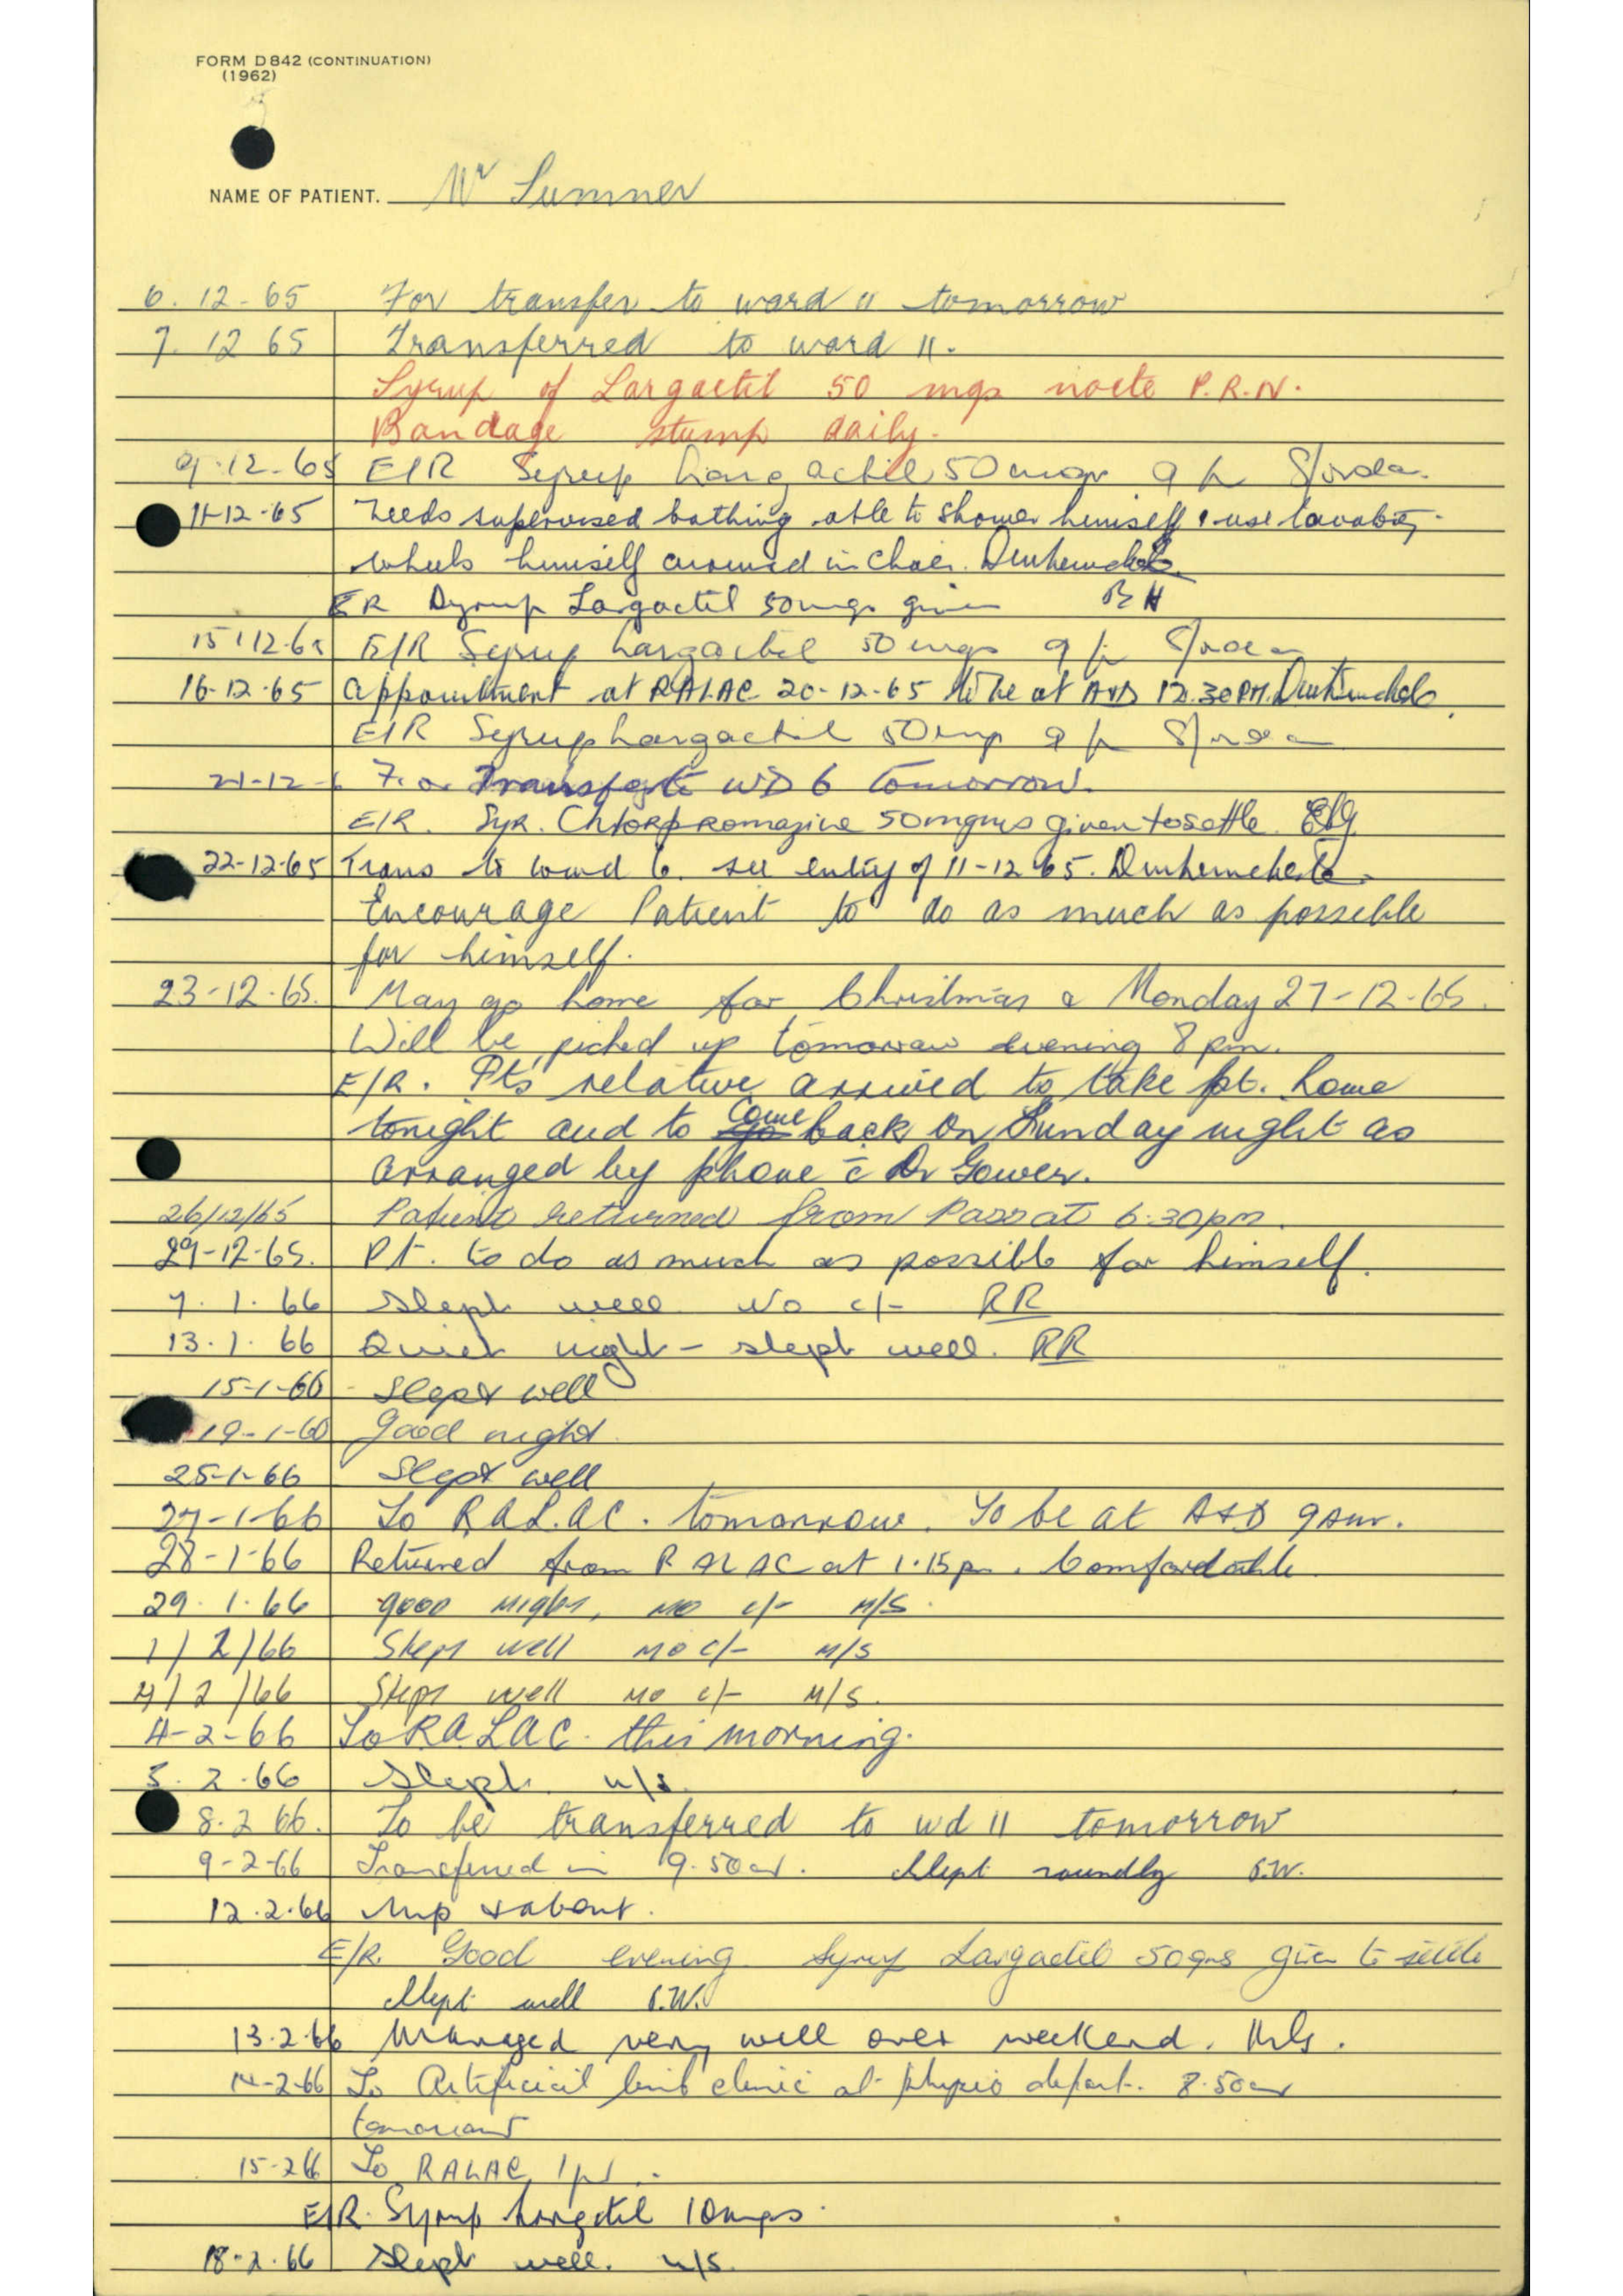 FORM D842 (CONTINUATION)
(1962)
NAME OF PATIENT. Mr Sumner
6. 12-65 For transfer to ward 11 tomorrow
7. 12 65 Transferred to ward 11.
Syrup of Largactil 50 mgs nocte P.R.N.
Bandage stump daily.
9.12.65 E/R Syrup Largactil 50mgs 9 p
11-12-65 Needs supervised bathing able to shower himself & use lavatory
wheels himself around in chair.
ER Syrup Largactil 50mgs given BH
15.12.65 E/R Syrup Largactil 50 mgs 9 p
16-12-65 Appointment at RALAC 20-12-65 to be at A&D 12.30PM.
E/R Syrup Largactil 50mg 9 p
21-12-6 For Transfer to WD 6 tomorrow.
E/R. Syr. Chlorpromazine 50mgms given to settle.
22-12-65 Trans to ward 6. see entry of 11-12 65.
Encourage Patient to do as much as possible
for himself.
23-12-65. May go home for Christmas & Monday 27-12-65.
Will be picked up tomorrow evening 8 pm.
E/R. Pts relative arrived to take pt. home
tonight and to go come back on Sunday night as
arranged by phone c̄ Dr Gower.
26/12/65 Patient returned from Pass at 6.30pm.
29-12-65. Pt. to do as much as possible for himself.
7. 1. 66 Slept well No c/- RR
13. 1. 66 Quiet night - slept well. RR
15-1-66 - Slept well
19-1-60 Good night.
25-1-66 Slept well
27-1-66 To RALAC. tomorrow. To be at A&D 9am.
28-1-66 Returned from RALAC at 1.15pm. Comfortable.
29. 1. 66 good night, no c/- M/S.
1/2/66 Slept well no c/- M/S
4/2/66 Slept well no c/- M/S.
4-2-66 To RALAC. this morning.
5. 2. 66 Slept. n/s.
8.2 66. To be transferred to wd 11 tomorrow
9-2-66 Transferred in 9.50am. Slept soundly S.W.
12.2.66 Up & about.
E/R. Good evening Syrup Largactil 50gms given to settle
Slept well S.W.
13.2.66 Managed very well over weekend.
14-2-66 To Artificial limb clinic at physio depart. 8.50am
tomorrow
15-2 66 To RALAC, 1pm.
E/R. Syrup Largctil 10mgs.
18-2.66 Slept well. n/s.